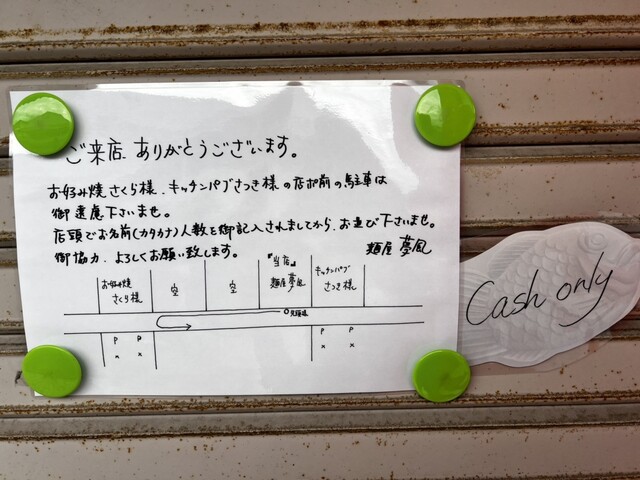 ご来店、ありがとうございます。
お好み焼さくら様、キッチンパブさつき様の店舗前の駐車は
御遠慮下さいませ。
店頭でお名前(カタカナ)人数を御記入されましてから、お並び下さいませ。
御協力、よろしくお願い致します。
麺屋 夢風
お好み焼
さくら様
空
空
『当店』
麺屋 夢風
キッチンパブ
さつき様
P P
× ×
P P
× ×
Cash only